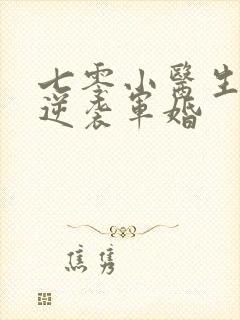 七零小醫生
逆袭軍婚
焦隽